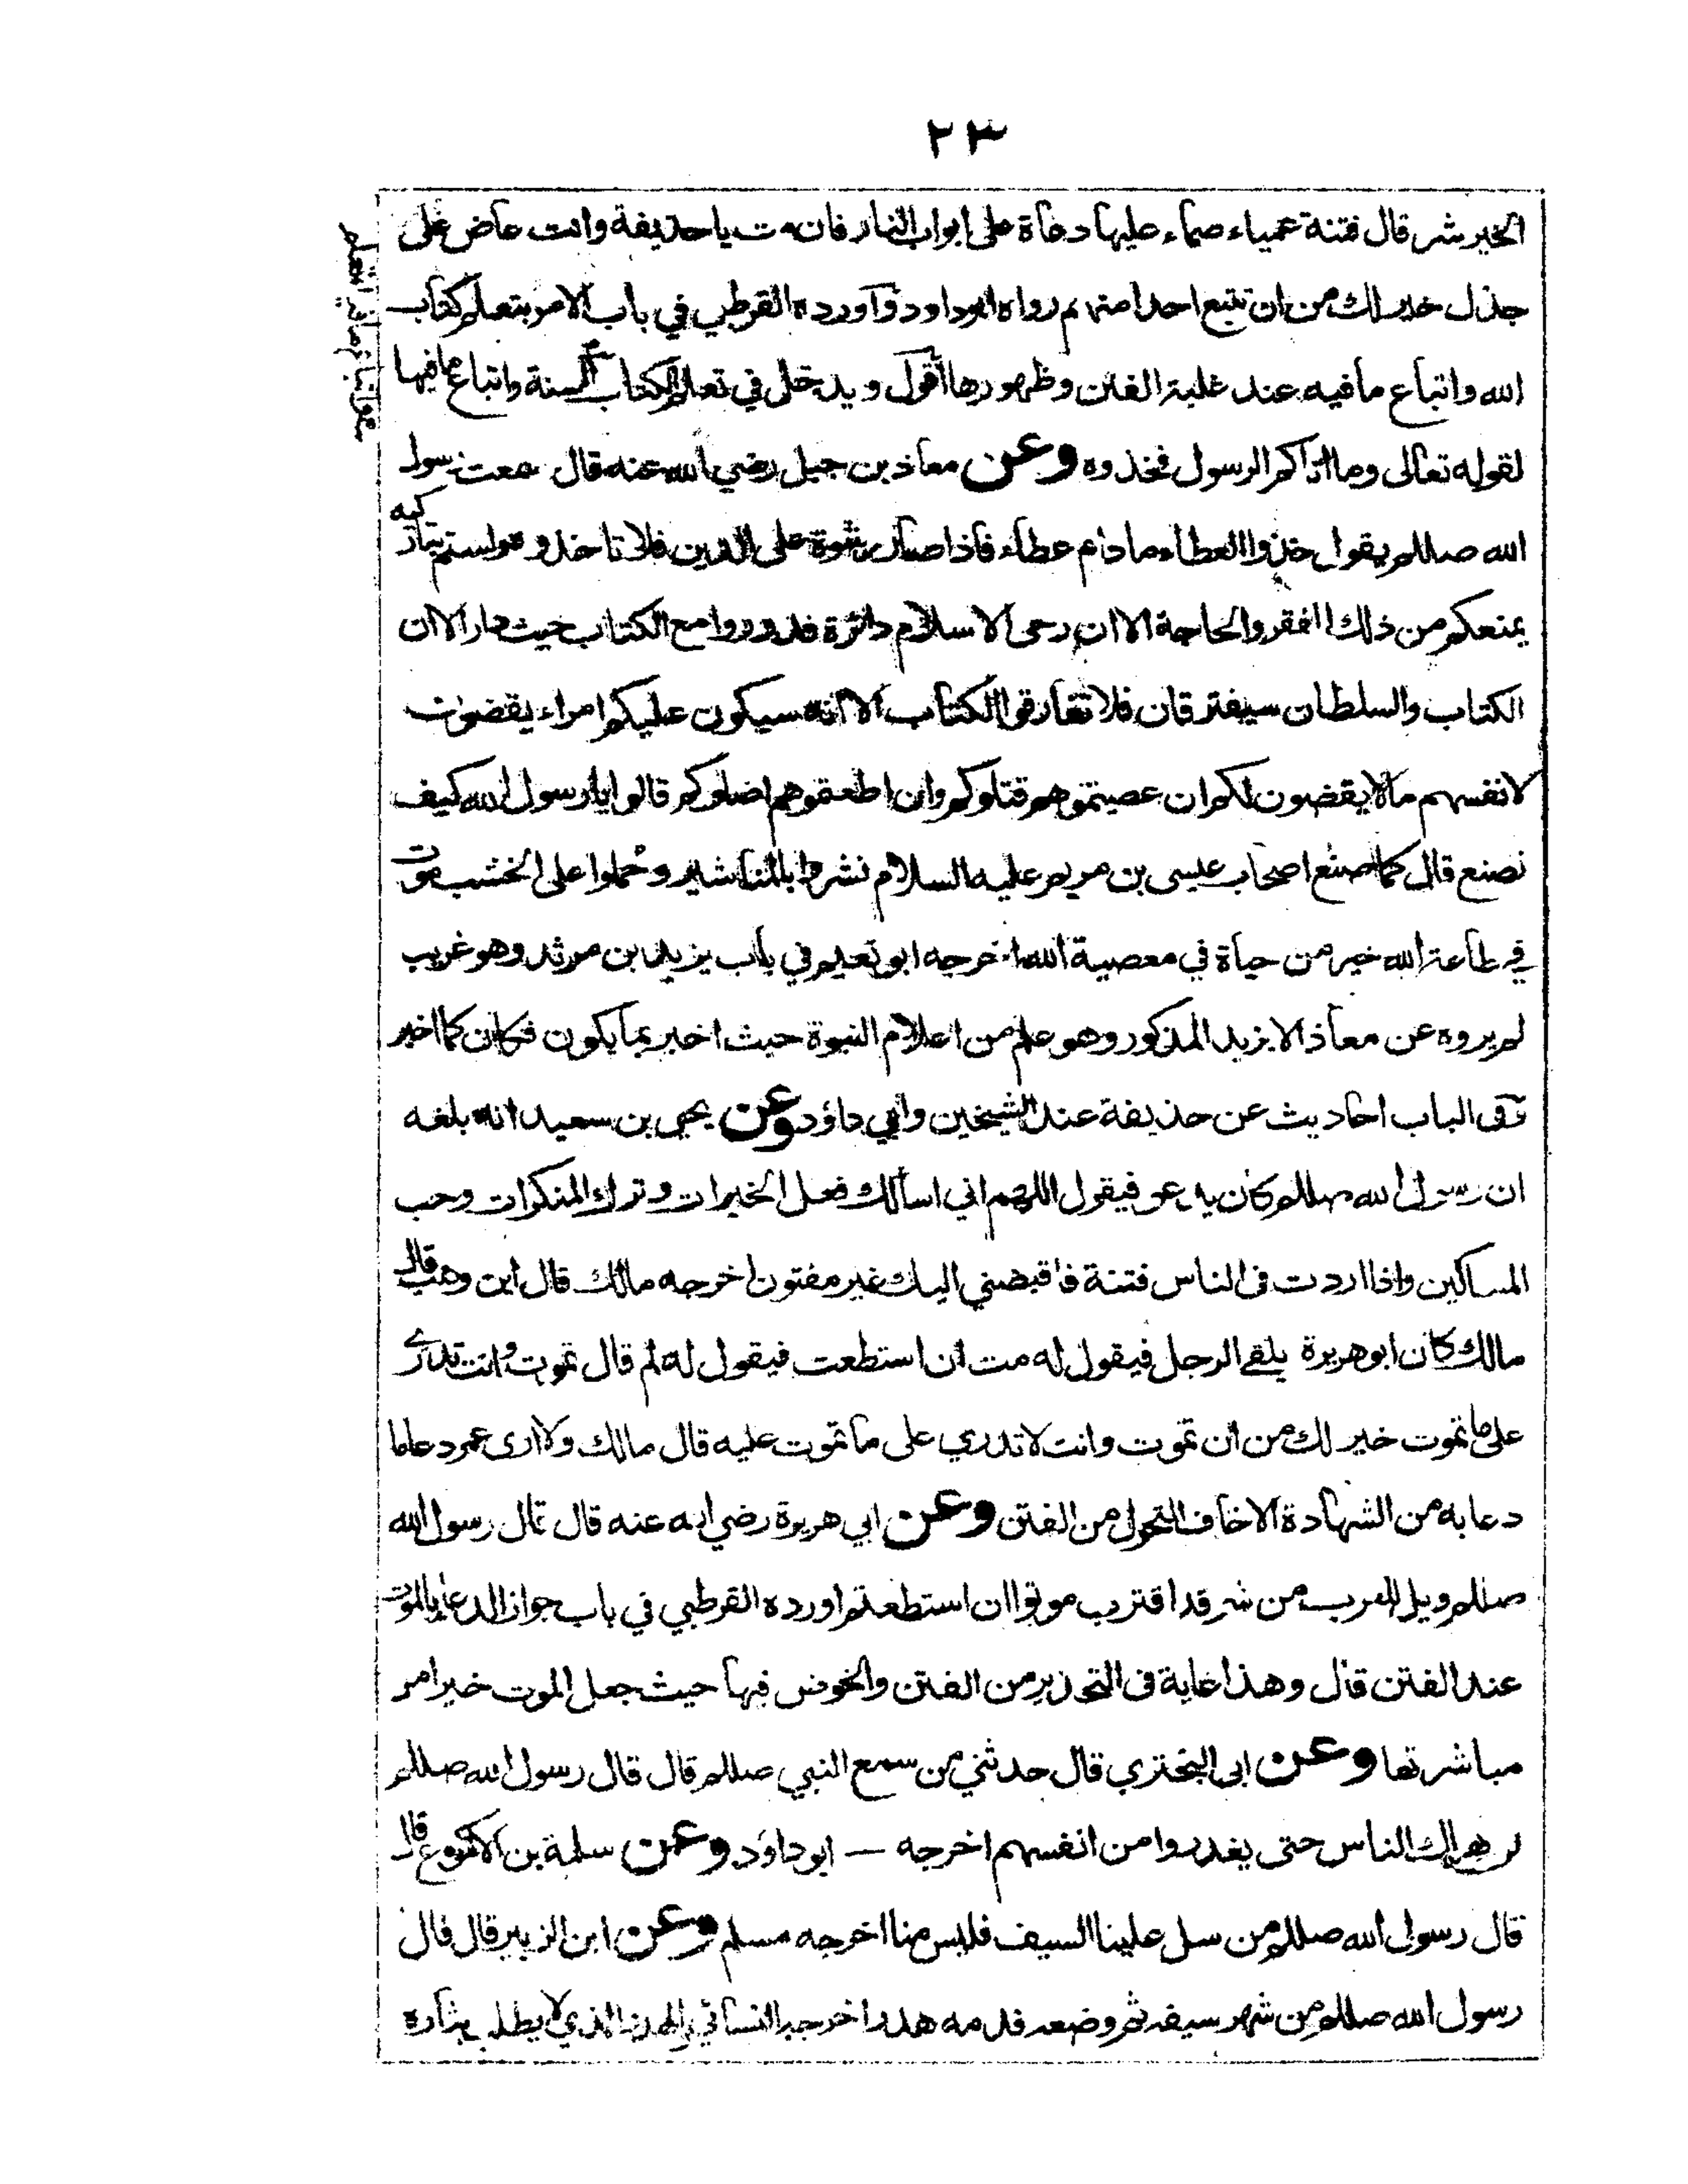 ٢٣
الخير شر قال فتنة عمياء صماء عليها دعاة على ابواب النار فان مت يا حذيفة وانت عاض على
جذل خير لك من ان تتبع احدا منهم رواه ابوداود وآورده القرطبي في باب الامر بتعلم كتاب
الله واتباع ما فيه عند غلبة الفتن وظهورها اقول ويدخل في تعلم الكتاب السنة واتباع ما فيها
لقوله تعالى وما اتاكم الرسول فخذوه وعن معاذ بن جبل رضي الله عنه قال سمعت رسول
الله صللم يقول خذوا العطاء ما دام عطاء فاذا صار رشوة على الدين فلا تاخذوه ولستم بتاركيه
يمنعكم من ذلك الفقر والحاجة الا ان رحى الاسلام دائرة فدوروا مع الكتاب حيث دار الا ان
الكتاب والسلطان سيفترقان فلا تفارقوا الكتاب الا انه سيكون عليكم امراء يقضون
لانفسهم مالا يقضون لكم ان عصيتموهم قتلوكم وان اطعتموهم اضلوكم قالوا يا رسول الله كيف
نصنع قال كما صنع اصحاب عيسى بن مريم عليه السلام نشروا بالمناشير وحملوا على الخشب موت
في طاعة الله خير من حياة في معصية الله اخرجه ابو نعيم في باب يزيد بن مرثد وهو غريب
لم يروه عن معاذ الا يزيد المذكور وهو علم من اعلام النبوة حيث اخبر بما يكون فكان كما اخبر
وفى الباب احاديث عن حذيفة عند الشيخين وابي داؤد وعن يحيى بن سعيد انه بلغه
ان رسول الله صللم كان يدعو فيقول اللهم اني اسألك فعل الخيرات وترك المنكرات وحب
المساكين واذا اردت فى الناس فتنة فاقبضني اليك غير مفتون اخرجه مالك قال ابن وهب قال
مالك كان ابو هريرة يلقى الرجل فيقول له مت ان استطعت فيقول له لم قال تموت وانت تدري
على ما تموت خير لك من ان تموت وانت لا تدري على ما تموت عليه قال مالك ولا ارى عمر دعا ما
دعا به من الشهادة الا خاف التحول من الفتن وعن ابي هريرة رضي الله عنه قال قال رسول الله
صللم ويل للعرب من شر قد اقترب موتوا ان استطعتم اورده القرطبي في باب جواز الدعاء بالموت
عند الفتن قال وهذا غاية فى التحذير من الفتن والخوض فيها حيث جعل الموت خيرا من
مباشرتها وعن ابى البختري قال حدثني من سمع النبي صللم قال قال رسول الله صللم
لن يهلك الناس حتى يغدروا من انفسهم اخرجه — ابو داؤد وعن سلمة بن الاكوع قال
قال رسول الله صللم من سل علينا السيف فليس منا اخرجه مسلم وعن ابن الزبير قال قال
رسول الله صللم من شهر سيفه ثم وضعه فدمه هدر اخرجه النسائي والهدر الذي لا يطلب بثاره